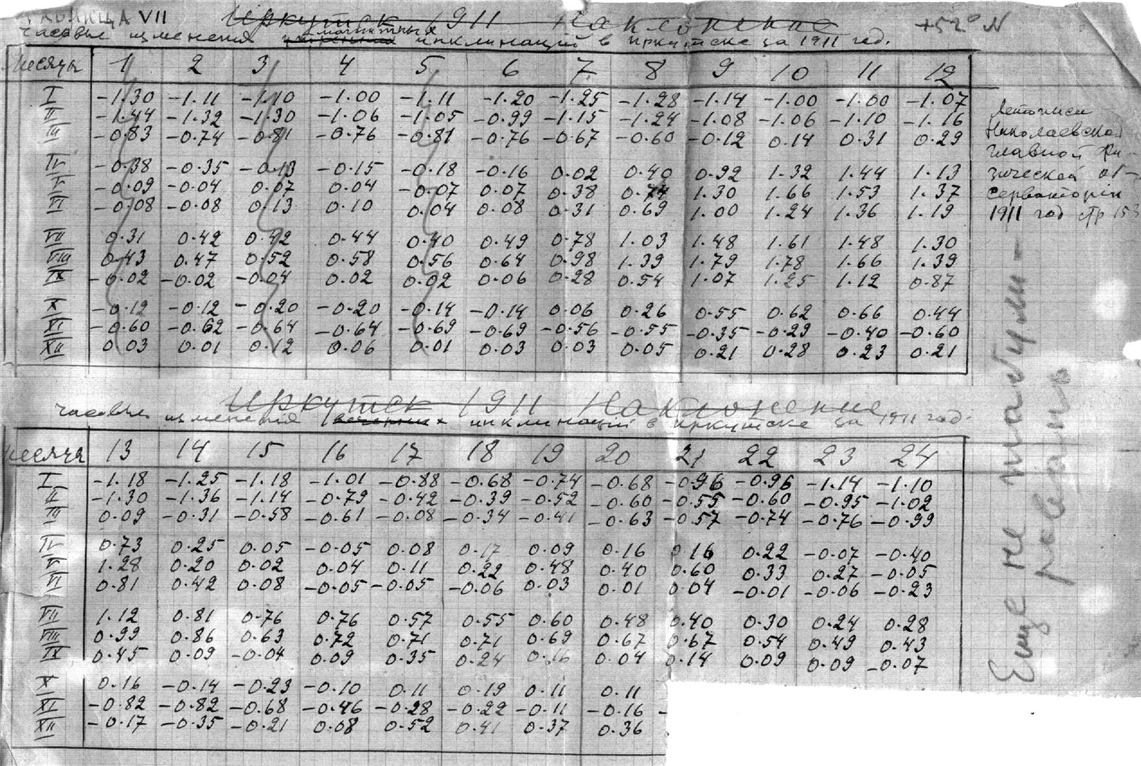 ТАБЛИЦА VII
Иркутск 1911 Наклонение +52° N
часовые изменения магнитных инклинаций в Иркутске за 1911 год.
месяцы 1 2 3 4 5 6 7 8 9 10 11 12
I -1.30 -1.11 -1.10 -1.00 -1.11 -1.20 -1.25 -1.28 -1.14 -1.00 -1.00 -1.07
II -1.44 -1.32 -1.30 -1.06 -1.05 -0.99 -1.15 -1.24 -1.08 -1.06 -1.10 -1.16
III -0.83 -0.74 -0.81 -0.76 -0.81 -0.76 -0.67 -0.60 -0.12 0.14 0.31 0.29
IV -0.38 -0.35 -0.13 -0.15 -0.18 -0.16 0.02 0.40 0.92 1.32 1.44 1.13
V -0.09 -0.04 0.07 0.04 -0.07 0.07 0.38 0.74 1.30 1.66 1.53 1.37
VI -0.08 -0.08 0.13 0.10 0.04 0.08 0.31 0.69 1.00 1.24 1.36 1.19
VII 0.31 0.42 0.42 0.44 0.40 0.49 0.78 1.03 1.48 1.61 1.48 1.30
VIII 0.43 0.47 0.52 0.58 0.56 0.64 0.98 1.39 1.79 1.78 1.66 1.39
IX -0.02 -0.02 -0.04 0.02 0.02 0.06 0.28 0.54 1.07 1.25 1.12 0.87
X -0.12 -0.12 -0.20 -0.20 -0.14 -0.14 0.06 0.26 0.55 0.62 0.66 0.44
XI -0.60 -0.62 -0.64 -0.64 -0.69 -0.69 -0.56 -0.55 -0.35 -0.29 -0.40 -0.60
XII 0.03 0.01 0.12 0.06 0.01 0.03 0.03 0.05 0.21 0.28 0.23 0.21
Летописи
Николаевской
главной фи-
зической об-
серватории
1911 год стр 15
Иркутск 1911 Наклонение
часовые изменения инклинаций в Иркутске за 1911 год.
месяца 13 14 15 16 17 18 19 20 21 22 23 24
I -1.18 -1.25 -1.18 -1.01 -0.88 -0.68 -0.74 -0.68 -0.96 -0.96 -1.14 -1.10
II -1.30 -1.36 -1.14 -0.79 -0.42 -0.39 -0.52 -0.60 -0.55 -0.60 -0.95 -1.02
III 0.09 -0.31 -0.58 -0.61 -0.08 -0.34 -0.41 -0.63 -0.57 -0.74 -0.76 -0.99
IV 0.73 0.25 0.05 -0.05 0.08 0.17 0.09 0.16 0.16 0.22 -0.07 -0.40
V 1.28 0.20 0.02 0.04 0.11 0.22 0.48 0.40 0.60 0.33 0.27 -0.05
VI 0.81 0.42 0.08 -0.05 -0.05 -0.06 0.03 0.01 0.04 -0.01 -0.06 -0.23
VII 1.12 0.81 0.76 0.76 0.57 0.55 0.60 0.48 0.40 0.30 0.24 0.28
VIII 0.99 0.86 0.63 0.72 0.71 0.71 0.69 0.67 0.67 0.54 0.49 0.43
IX 0.45 0.09 -0.04 0.09 0.35 0.24 0.16 0.04 0.14 0.09 0.09 -0.07
X 0.16 -0.14 -0.23 -0.10 0.11 0.19 0.11 0.11
XI -0.82 -0.82 -0.68 -0.46 -0.28 -0.22 -0.11 -0.16 -
XII -0.17 -0.35 -0.21 0.08 0.52 0.41 0.37 0.36
Еще не табули-
ровано